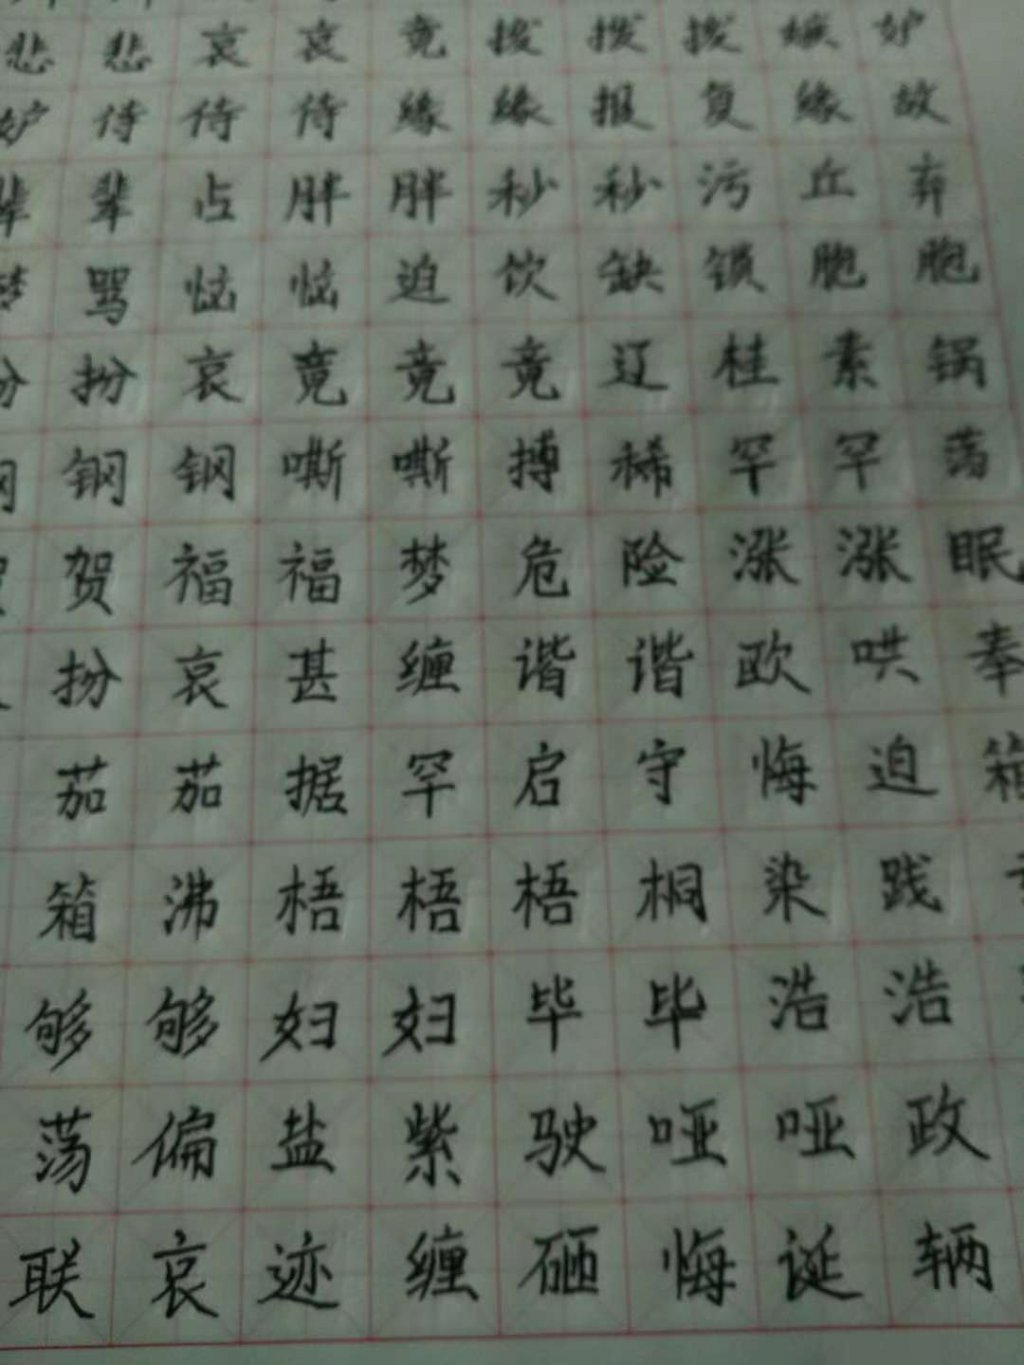 悲 悲 哀 哀 竟 拨 拨 拨 嫉 妒
妒 侍 侍 侍 缘 缘 报 复 缘 故
辈 辈 占 胖 胖 秒 秒 污 丘 弃
梦 骂 恼 恼 迫 饮 缺 锁 胞 胞
扮 扮 哀 竟 竞 竟 辽 桂 素 锅
钢 钢 钢 嘶 嘶 搏 稀 罕 罕 荡
贺 贺 福 福 梦 危 险 涨 涨 眠
扮 哀 甚 缠 谐 谐 欧 哄 奉
茄 茄 据 罕 启 守 悔 迫 箱
箱 沸 梧 梧 梧 桐 染 践
够 够 妇 妇 毕 毕 浩 浩
荡 偏 盐 紫 驶 哑 哑 政
联 哀 迹 缠 砸 悔 诞 辆